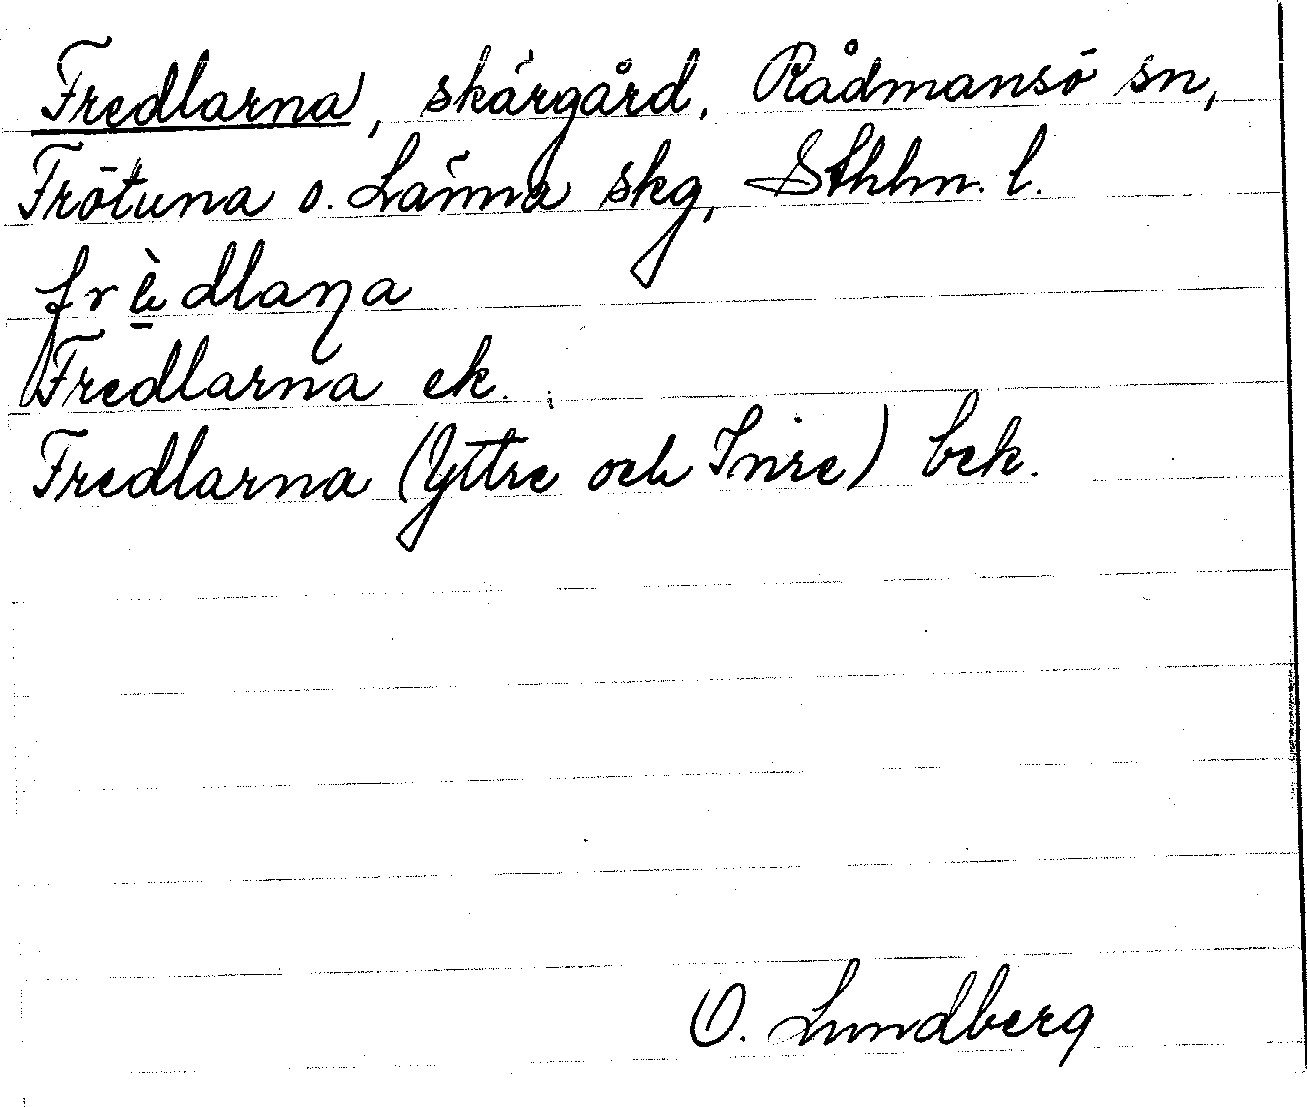 Fredlarna, skärgård, Rådmansö sn,
Frötuna o. Länna skg, Sthlm. l.
frèdlaɳa
Fredlarna ek.
Fredlarna (Yttre och Inre) bek.
O. Lundberg